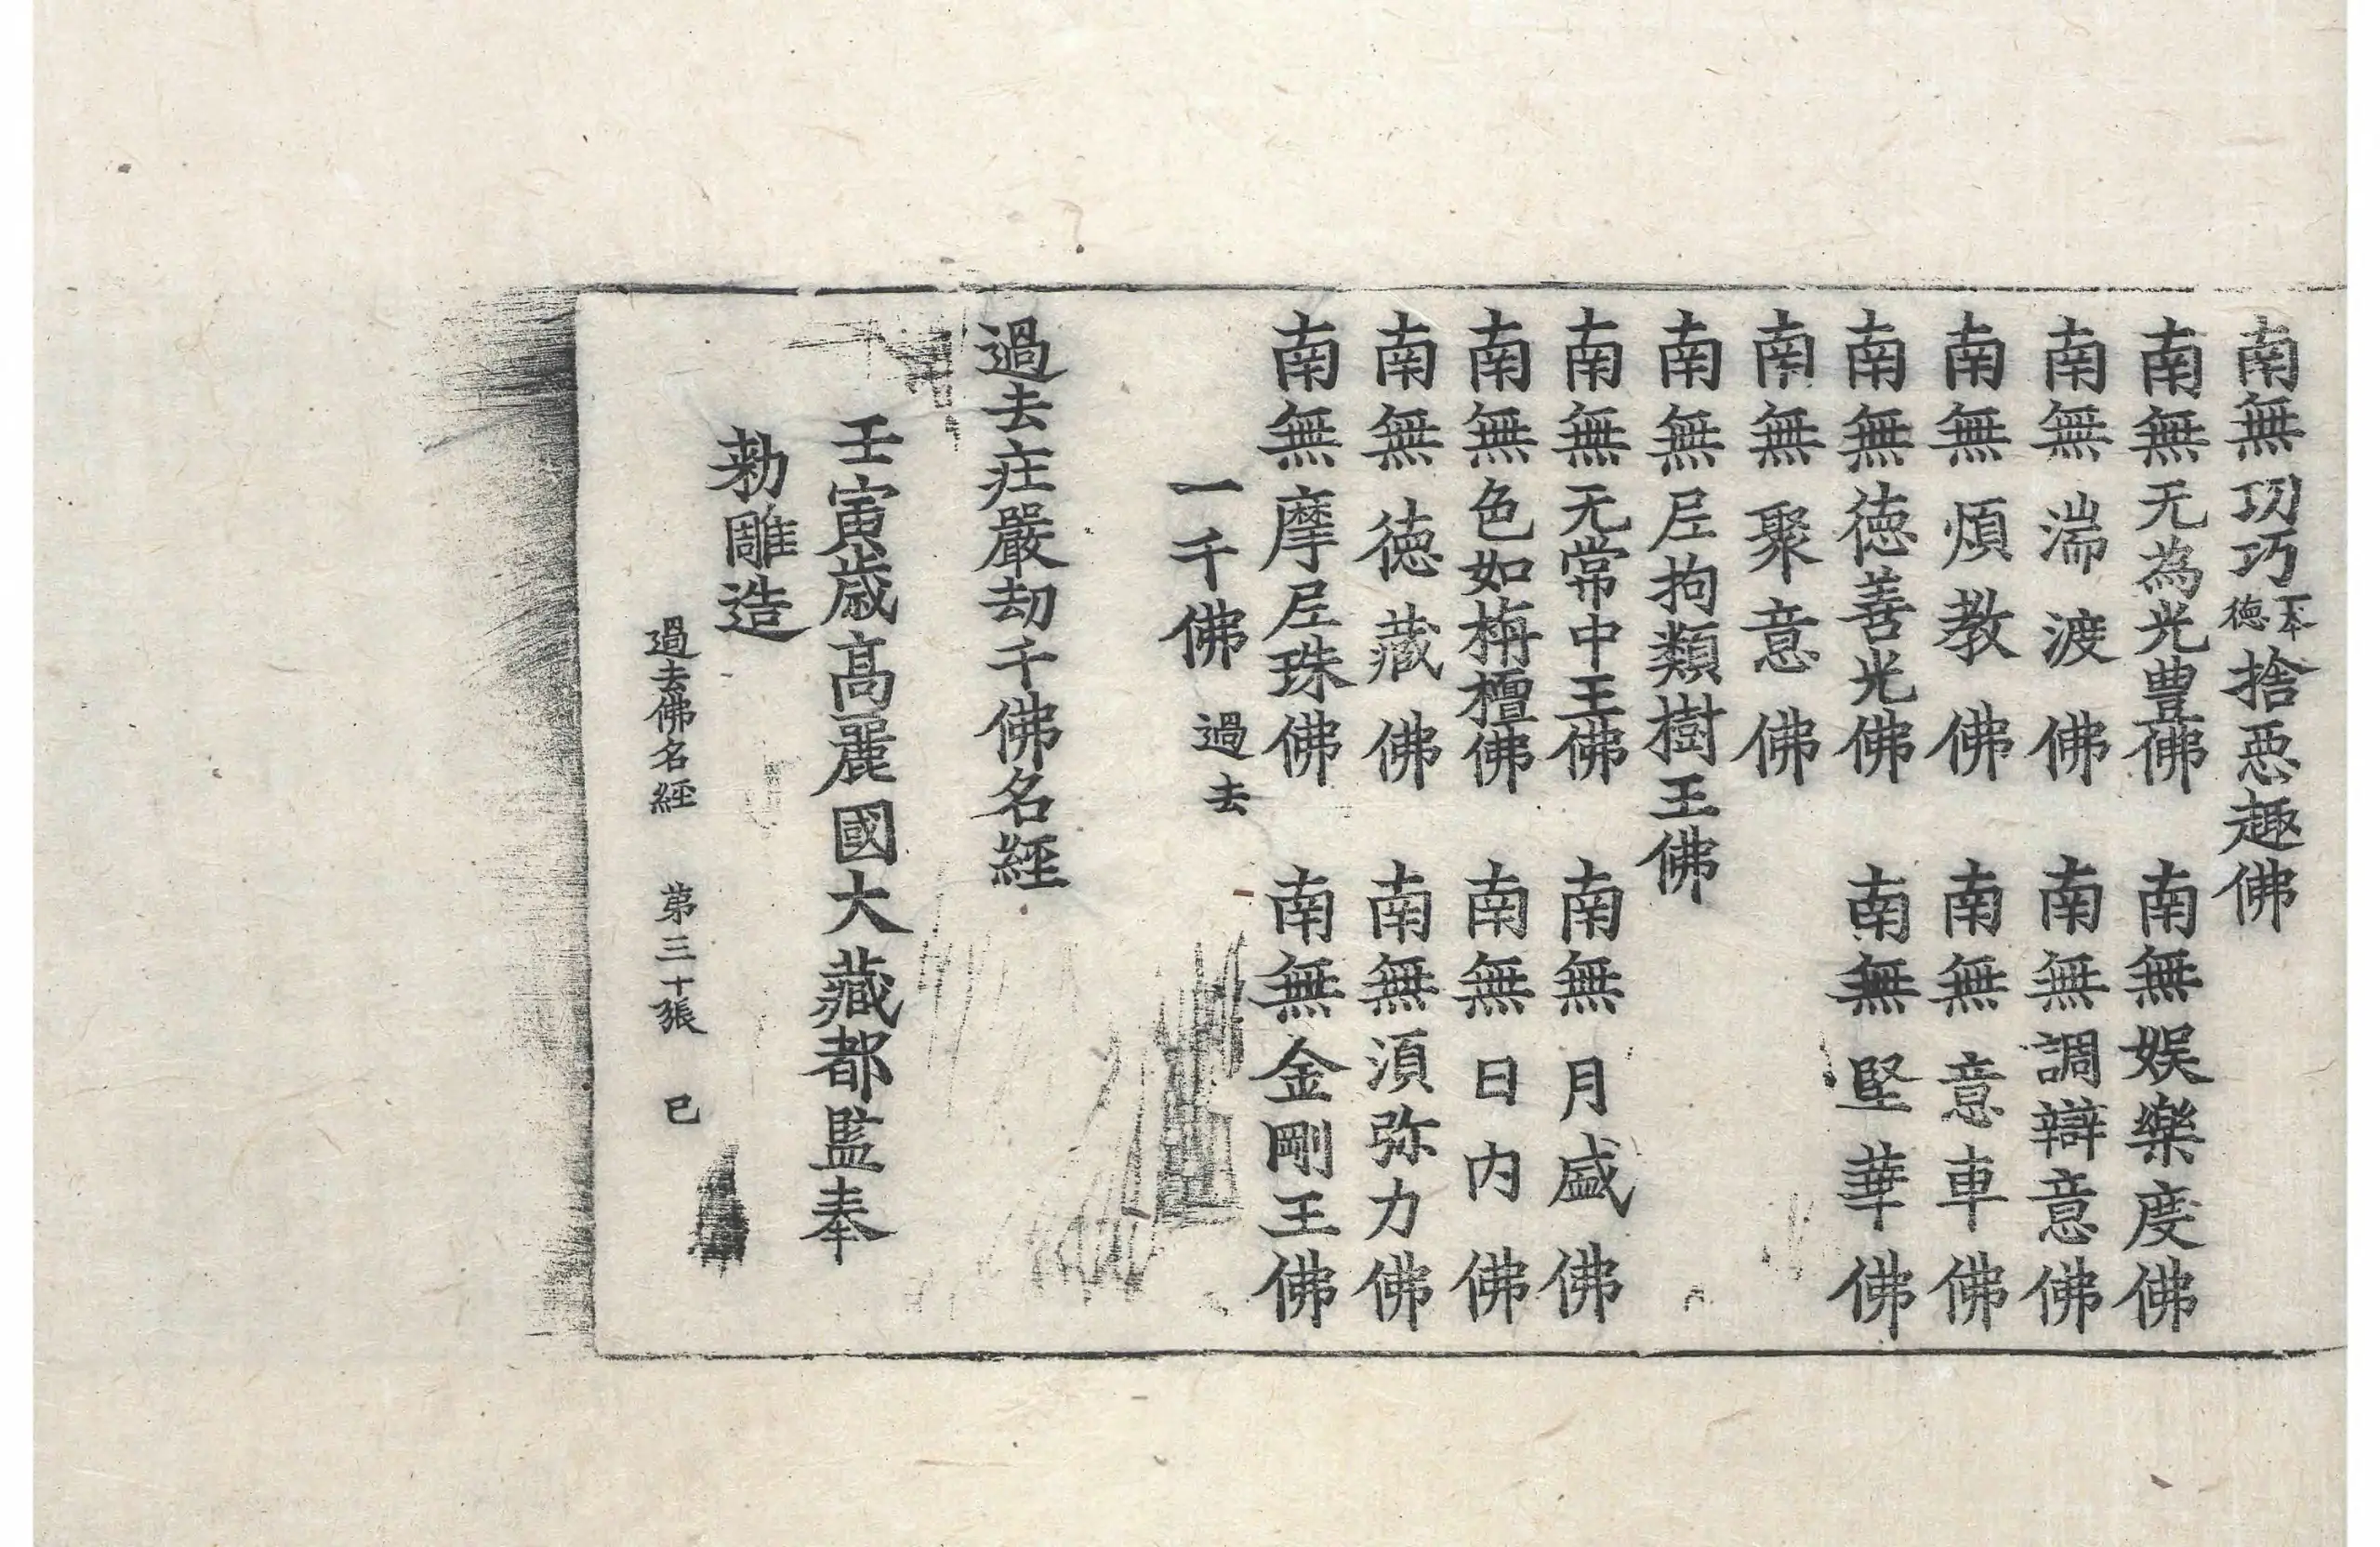 南無㓛巧一本德捨惡趣佛
南無无為光豊佛 南無娛樂度佛
南無湍渡佛 南無調辯意佛
南無煩教佛 南無意車佛
南無德善光佛 南無堅華佛
南無聚意佛
南無尼拘類樹王佛
南無无常中王佛 南無月盛佛
南無色如栴檀佛 南無日內佛
南無德藏佛 南無湏弥力佛
南無摩尼珠佛 南無金剛王佛
一千佛 過去
過去莊嚴劫千佛名經
壬寅歲高麗國大藏都監奉
勑雕造
過去佛名經 第三十張 巳